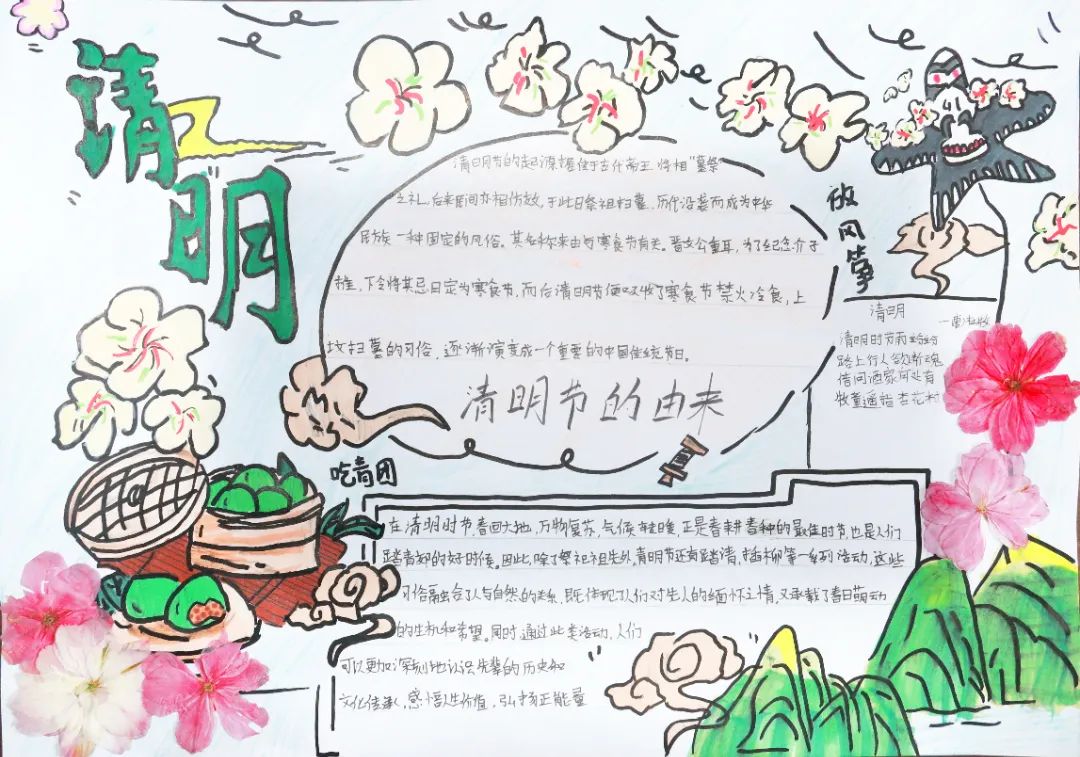 清明
清明节的起源据传始于古代帝王将相"墓祭"
之礼,后来民间亦相仿效,于此日祭祖扫墓,历代沿袭而成为中华
民族一种固定的风俗。其名称来由与寒食节有关。晋文公重耳,为了纪念介子
推,下令将其忌日定为寒食节,而后清明节便吸收了寒食节禁火冷食,上
坟扫墓的习俗,逐渐演变成一个重要的中国传统节日。
清明节的由来
放风筝
清明
—唐 杜牧
清明时节雨纷纷
路上行人欲断魂
借问酒家何处有
牧童遥指杏花村
吃青团
在清明时节,春回大地,万物复苏,气候转暖,正是春耕春种的最佳时节,也是人们
踏青郊的好时候。因此,除了祭祀祖先外,清明节还有踏青,插柳等一系列活动,这些
习俗融合了人与自然的关系,既体现了人们对先人的缅怀之情,又承载了春日萌动
的生机和希望。同时通过此类活动,人们
可以更加深刻地认识先辈的历史和
文化传承,感悟人生价值,弘扬正能量